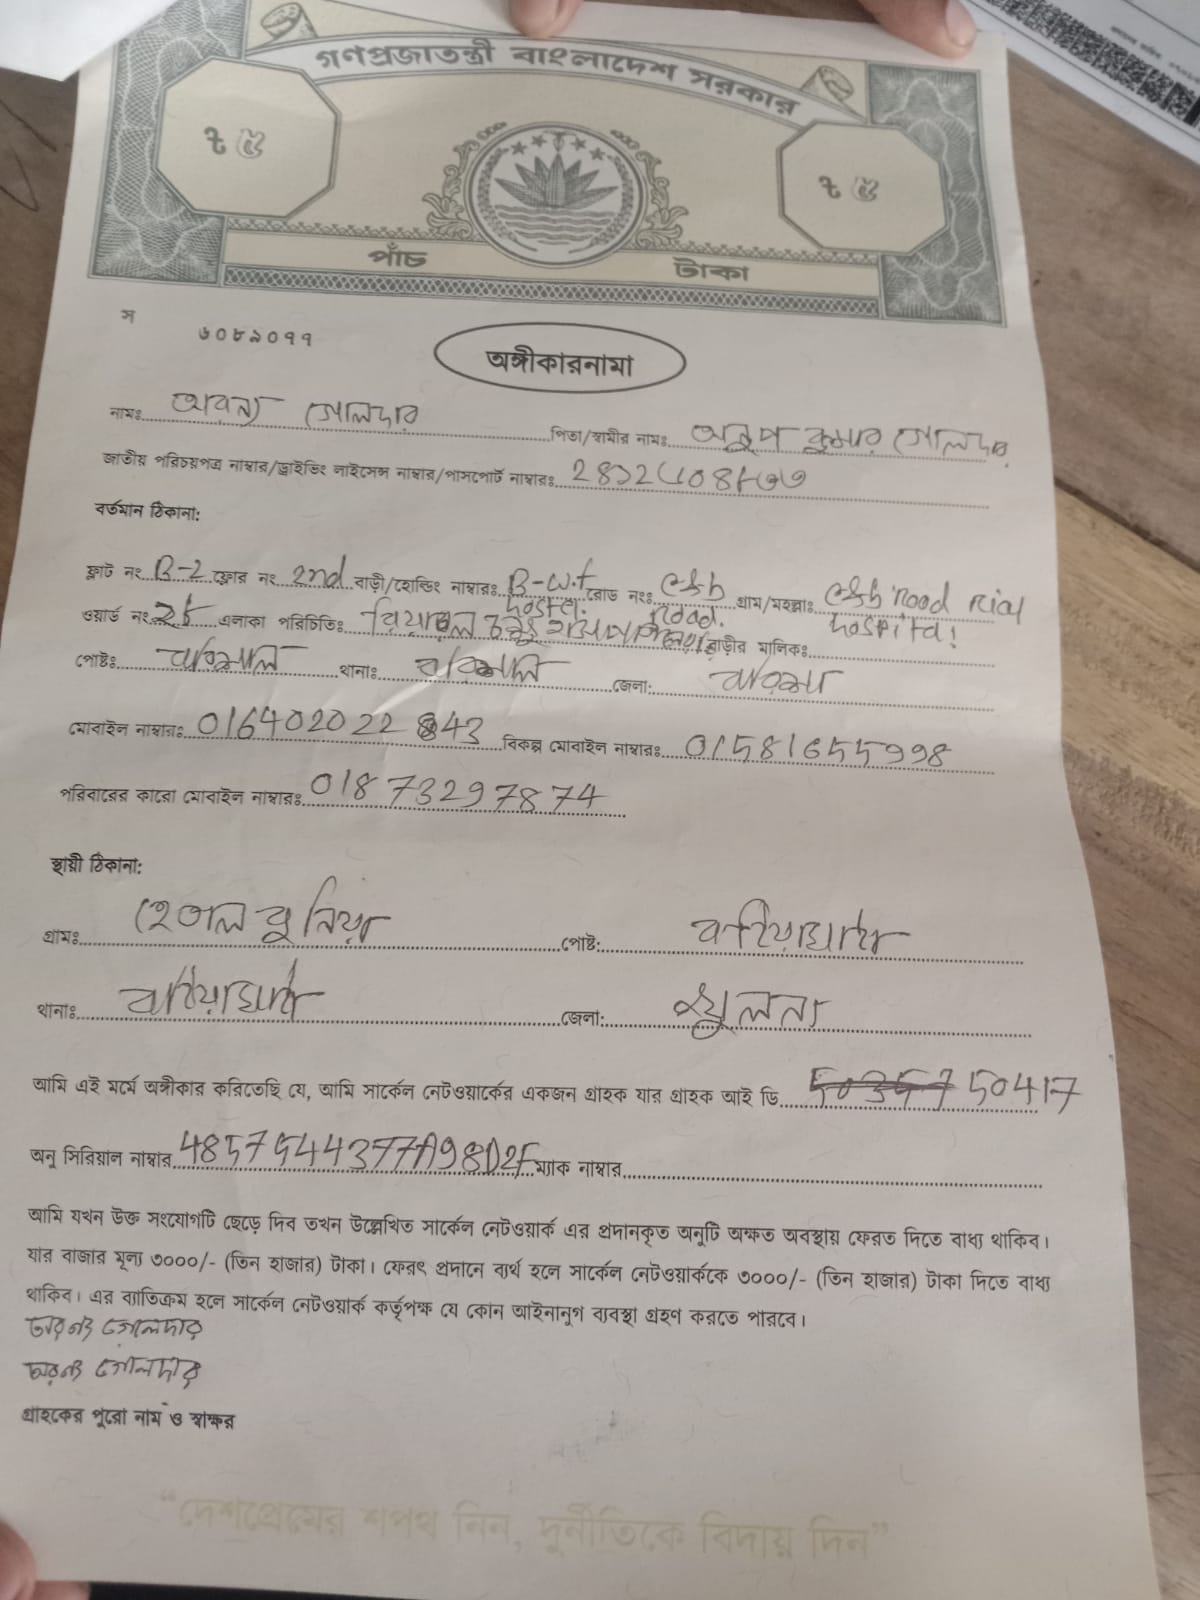 গণপ্রজাতন্ত্রী বাংলাদেশ সরকার
৳ ৫ ৳ ৫
পাঁচ টাকা
স ৬০৮৯০৭৭
অঙ্গীকারনামা
নামঃ অরন্য গোলদার পিতা/স্বামীর নামঃ অনুপ কুমার গোলদার
জাতীয় পরিচয়পত্র নাম্বার/ড্রাইভিং লাইসেন্স নাম্বার/পাসপোর্ট নাম্বারঃ
বর্তমান ঠিকানা:
ফ্লাট নং B-2 ফ্লোর নং 2nd বাড়ী/হোল্ডিং নাম্বারঃ রোড নং: road. গ্রাম/মহল্লাঃ road
ওয়ার্ড নং এলাকা পরিচিতিঃ বাড়ীর মালিকঃ
পোষ্টঃ বরিশাল থানাঃ বরিশাল জেলা:
মোবাইল নাম্বারঃ বিকল্প মোবাইল নাম্বারঃ 01581655998
পরিবারের কারো মোবাইল নাম্বারঃ 01873297874
স্থায়ী ঠিকানা:
গ্রামঃ হেতালবুনিয়া পোষ্ট: বটিয়াঘাটা
থানাঃ বটিয়াঘাটা জেলা: খুলনা
আমি এই মর্মে অঙ্গীকার করিতেছি যে, আমি সার্কেল নেটওয়ার্কের একজন গ্রাহক যার গ্রাহক আই ডি 50417
অনু সিরিয়াল নাম্বার 48575444377A98D2F ম্যাক নাম্বার
আমি যখন উক্ত সংযোগটি ছেড়ে দিব তখন উল্লেখিত সার্কেল নেটওয়ার্ক এর প্রদানকৃত অনুটি অক্ষত অবস্থায় ফেরত দিতে বাধ্য থাকিব।
যার বাজার মূল্য ৩০০০/- (তিন হাজার) টাকা। ফেরৎ প্রদানে ব্যর্থ হলে সার্কেল নেটওয়ার্ককে ৩০০০/- (তিন হাজার) টাকা দিতে বাধ্য
থাকিব। এর ব্যাতিক্রম হলে সার্কেল নেটওয়ার্ক কর্তৃপক্ষ যে কোন আইনানুগ ব্যবস্থা গ্রহণ করতে পারবে।
অরন্য গোলদার
অরন্য গোলদার
গ্রাহকের পুরো নাম ও স্বাক্ষর
“দেশপ্রেমের শপথ নিন, দুর্নীতিকে বিদায় দিন”